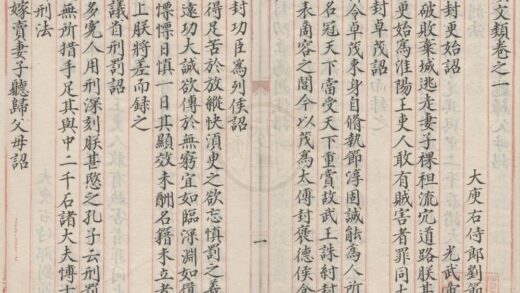 文類卷之一
大庾右侍郎劉節
封更始詔　光武帝
破敗棄城逃走妻子裸袒流宂道路朕甚
更始為淮陽王吏人敢有賊害者罪同大
封卓茂詔
令卓茂束身自脩執節淳固誠能為人所
名冠天下當受天下重賞故武王誅紂封
表商容之閭今以茂為太傅封褒德侯食
一
封功臣為列侯詔
得足苦於放縱快須臾之欲忘慎罰之義
遠功大誠欲傳於無窮宜如臨深淵如履
慄慄日慎一日其顯效未酬名籍未立者
上朕將差而錄之
議省刑罰詔
多冤人用刑深刻朕甚愍之孔子云刑罰
無所措手足其與中二千石諸大夫博士
刑法
嫁賣妻子聽歸父母詔